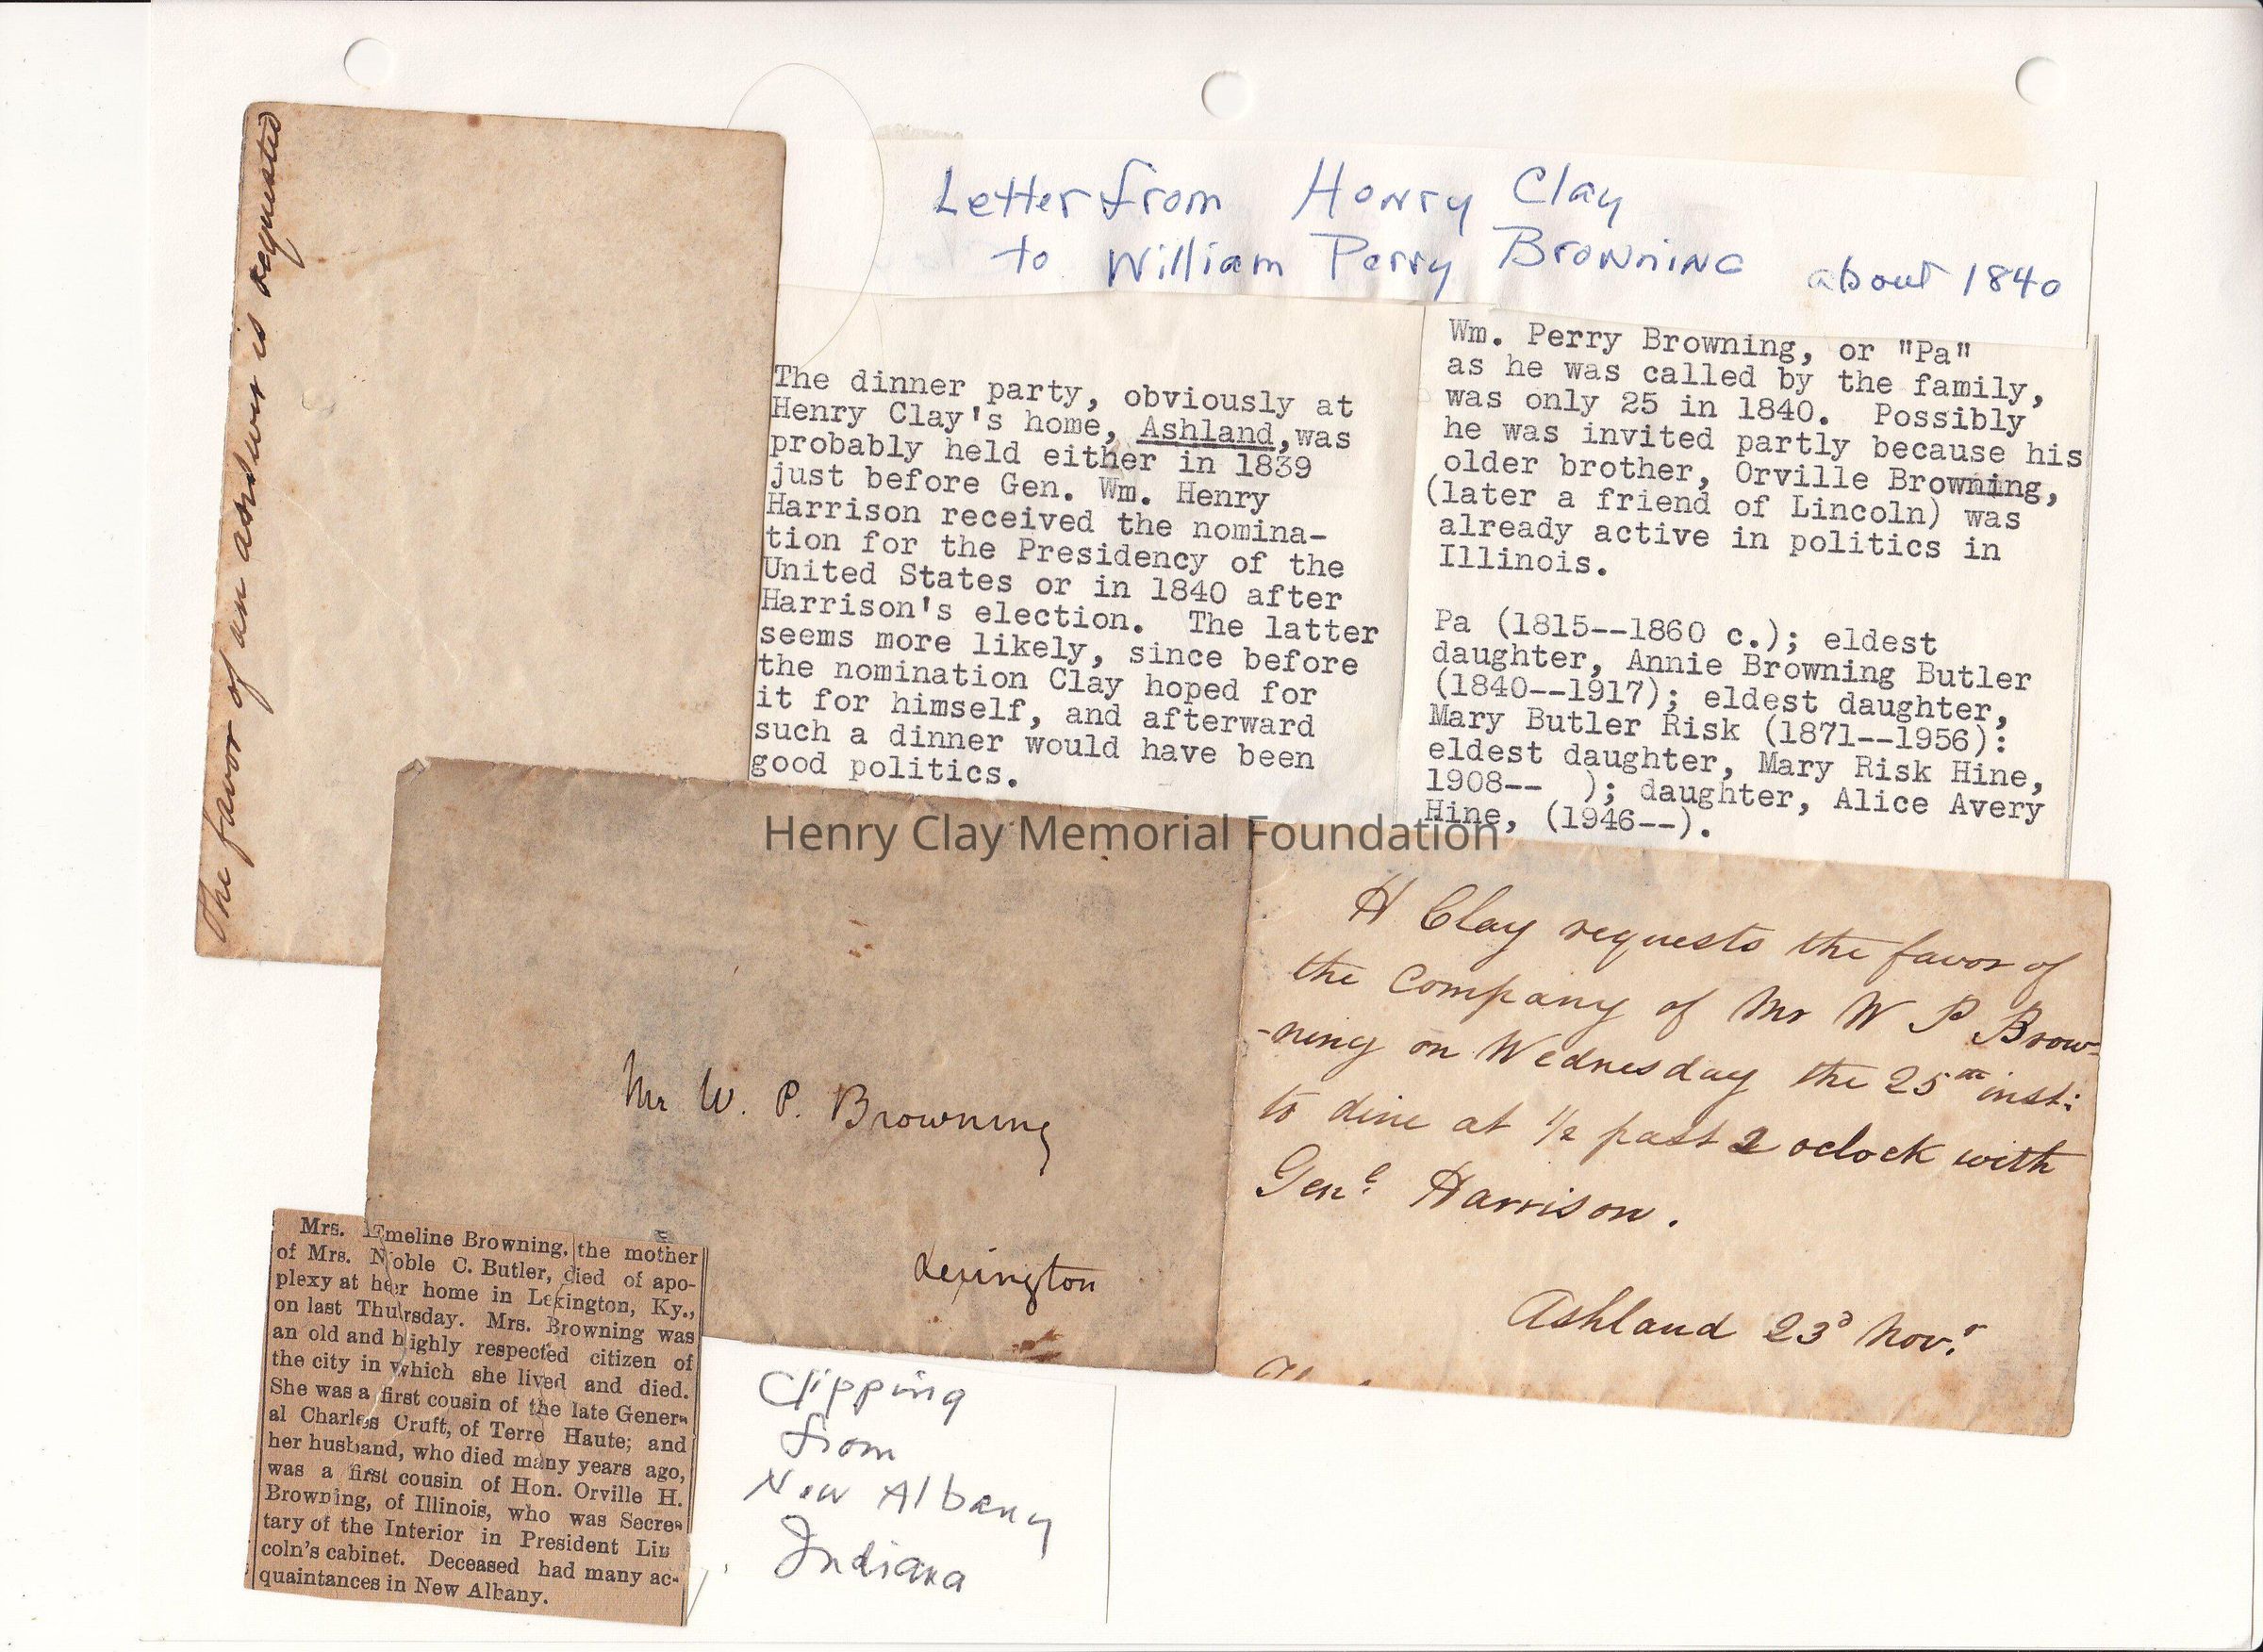 The favor of an answer is requested
Letter from Henry Clay
to William Perry Browning about 1840
The dinner party, obviously at
Henry Clay's home, Ashland,was
probably held either in 1839
just before Gen. Wm. Henry
Harrison received the nomina-
tion for the Presidency of the
United States or in 1840 after
Harrison's election. The latter
seems more likely, since before
the nomination Clay hoped for
it for himself, and afterward
such a dinner would have been
good politics.
Wm. Perry Browning, or "Pa"
as he was called by the family,
was only 25 in 1840. Possibly
he was invited partly because his
older brother, Orville Browning,
(later a friend of Lincoln) was
already active in politics in
Illinois.
Pa (1815--1860 c.); eldest
daughter, Annie Browning Butler
(1840--1917); eldest daughter,
Mary Butler Risk (1871--1956):
eldest daughter, Mary Risk Hine,
1908-- ); daughter, Alice Avery
Hine, (1946--).
Henry Clay Memorial Foundation
Mr W. P. Browning
Lexington
H Clay requests the favor of
the Company of Mr W P Brow-
-ning on Wednesday the 25th inst:
to dine at 1/2 past 2 oclock with
Genl Harrison.
Ashland 23d Novr
Mrs. Emeline Browning, the mother
of Mrs. Noble C. Butler, died of apo-
plexy at her home in Lexington, Ky.,
on last Thursday. Mrs. Browning was
an old and highly respected citizen of
the city in which she lived and died.
She was a first cousin of the late Gener-
al Charles Cruft, of Terre Haute; and
her husband, who died many years ago,
was a first cousin of Hon. Orville H.
Browning, of Illinois, who was Secre-
tary of the Interior in President Lin
coln's cabinet. Deceased had many ac-
quaintances in New Albany.
Clipping
from
New Albany
Indiana